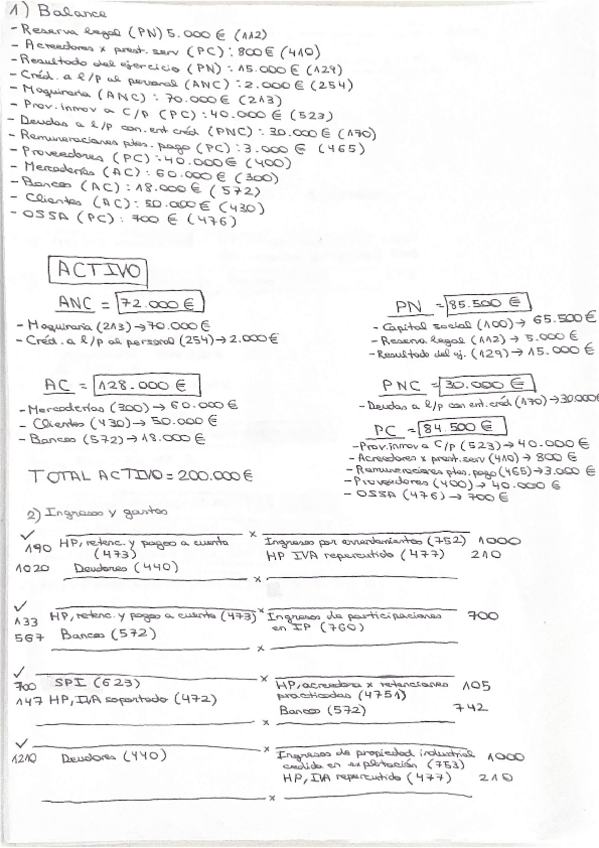 1) Balance
- Reserva legal (PN) 5.000 € (112)
- Acreedores x prest. serv (PC) : 800 € (410)
- Resultado del ejercicio (PN) : 15.000 € (129)
- Créd. a l/p al personal (ANC) : 2.000 € (254)
- Maquinaria (ANC) : 70.000 € (213)
- Prov. inmov a C/P (PC) : 40.000 € (523)
- Deudas a l/p con. ent créd (PNC) : 30.000 € (170)
- Remuneraciones ptes. pago (PC) : 3.000 € (465)
- Proveedores (PC) : 40.000 € (400)
- Mercaderías (AC) : 60.000 € (300)
- Bancos (AC) : 18.000 € (572)
- Clientes (AC) : 50.000 € (430)
- OSSA (PC) : 700 € (476)
ACTIVO
ANC = 72.000 €
- Maquinaria (213) → 70.000 €
- Créd. a l/p al personal (254) → 2.000 €
PN = 85.500 €
- Capital social (100) → 65.500 €
- Reserva legal (112) → 5.000 €
- Resultado del ej. (129) → 15.000 €
AC = 128.000 €
- Mercaderías (300) → 60.000 €
- Clientes (430) → 50.000 €
- Bancos (572) → 18.000 €
PNC = 30.000 €
- Deudas a l/p con ent. créd (170) → 30.000€
PC = 84.500 €
- Prov. inmov a C/p (523) → 40.000 €
- Acreedores x prest. serv (410) → 800 €
- Remuneraciones ptes. pago (465) → 3.000 €
- Proveedores (400) → 40.000 €
- OSSA (476) → 700 €
TOTAL ACTIVO = 200.000 €
2) Ingresos y gastos
x
✓
190 HP, retenc. y pagos a cuenta (473) Ingresos por arrendamientos (752) 1000
1020 Deudores (440) HP IVA repercutido (477) 210
x
✓
x
133 HP, retenc. y pagos a cuenta (473) Ingresos de participaciones 700
567 Bancos (572) en IP (760)
x
✓
x
700 SPI (623) HP, acreedora x retenciones 105
practicadas (4751)
147 HP, IVA soportado (472) Bancos (572) 742
x
✓
x
1210 Deudores (440) Ingresos de propiedad industrial 1000
cedida en explotación (753)
HP, IVA repercutido (477) 210
x